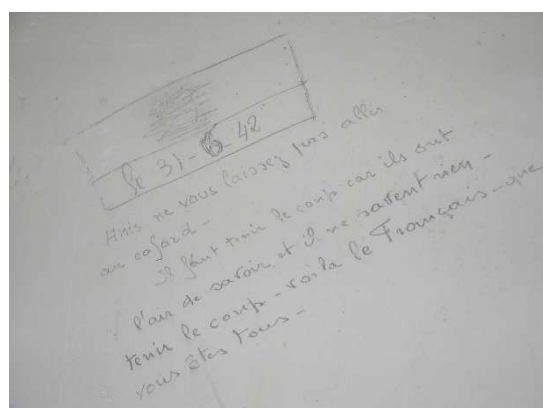 le 31-6-42
Amis ne vous laissez pas aller
au cafard-
Il faut tenir le coup car ils ont
l'air de savoir et il ne savent rien-
tenir le coup-voilà le Français-que
vous êtes tous-